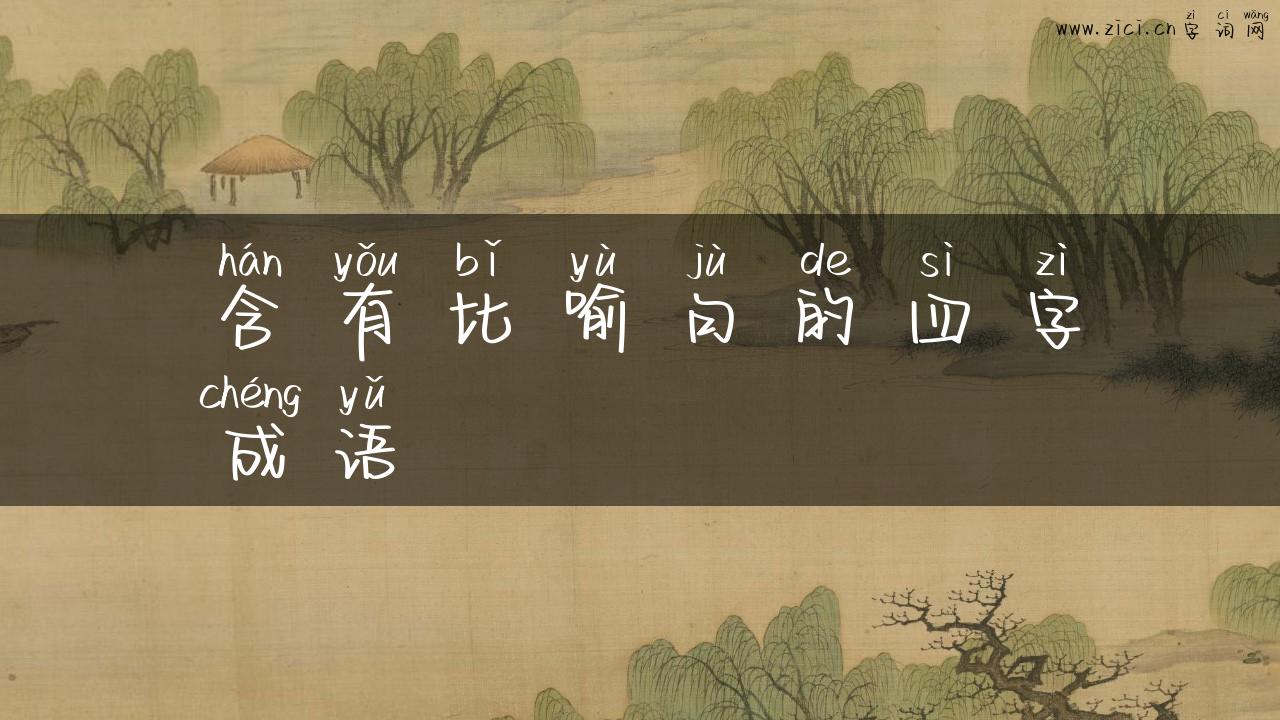 zì cí wǎng
www.zici.cn 字词网
hán yǒu bǐ yù jù de sì zì
含有比喻句的四字
chéng yǔ
成语